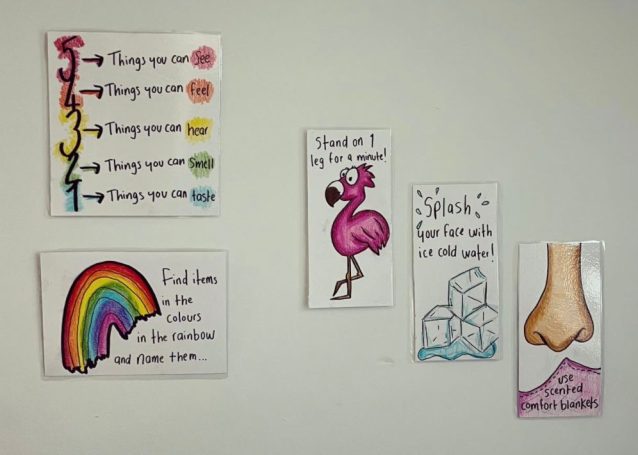 5 → Things you can see
4 → Things you can feel
3 → Things you can hear
2 → Things you can smell
1 → Things you can taste
Find items
in the
colours
in the rainbow
and name them...
Stand on 1
leg for a minute!
Splash
your face with
ice cold water!
use
scented
comfort blankets